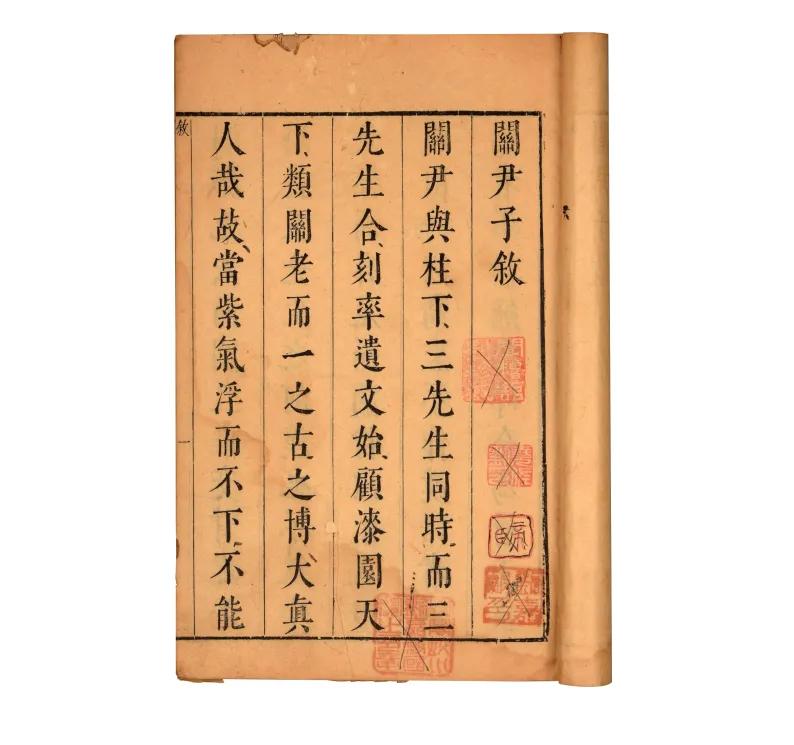 關尹子敘
關尹與柱下三先生同時而三
先生合刻率遺文始顧漆園天
下類關老而一之古之博大真
人哉故當紫氣浮而不下不能
敘
一